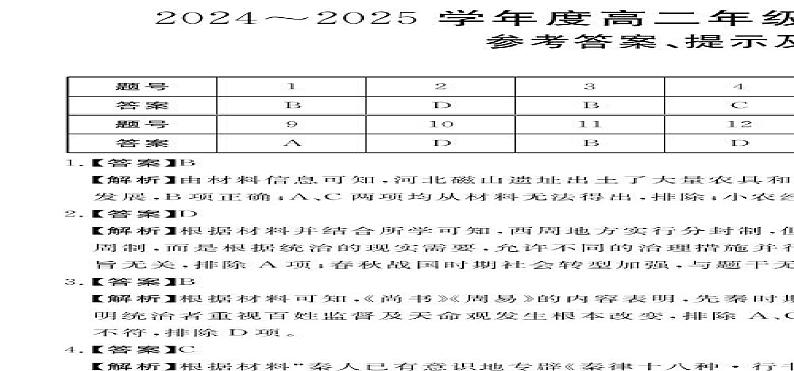 2024～2025 学年度高二年级
参考答案、提示及
题号 1 2 3 4
答案 B D B C
题号 9 10 11 12
答案 A D B D
1.【答案】B
【解析】由材料信息可知,河北磁山遗址出土了大量农具和
发展,B 项正确;A、C 两项均从材料无法得出,排除;小农
2.【答案】D
【解析】根据材料并结合所学可知,西周地方实行分封制,
周制,而是根据统治的现实需要,允许不同的治理措施并行
旨无关,排除 A 项;春秋战国时期社会转型加强,与题干无
3.【答案】B
【解析】根据材料可知,《尚书》《周易》的内容表明,先秦时
明统治者重视百姓监督及天命观发生根本改变,排除 A、C
不符,排除 D 项。
4.【答案】C
【解析】根据材料“秦人已有意识地专辟《秦律十八种·行书